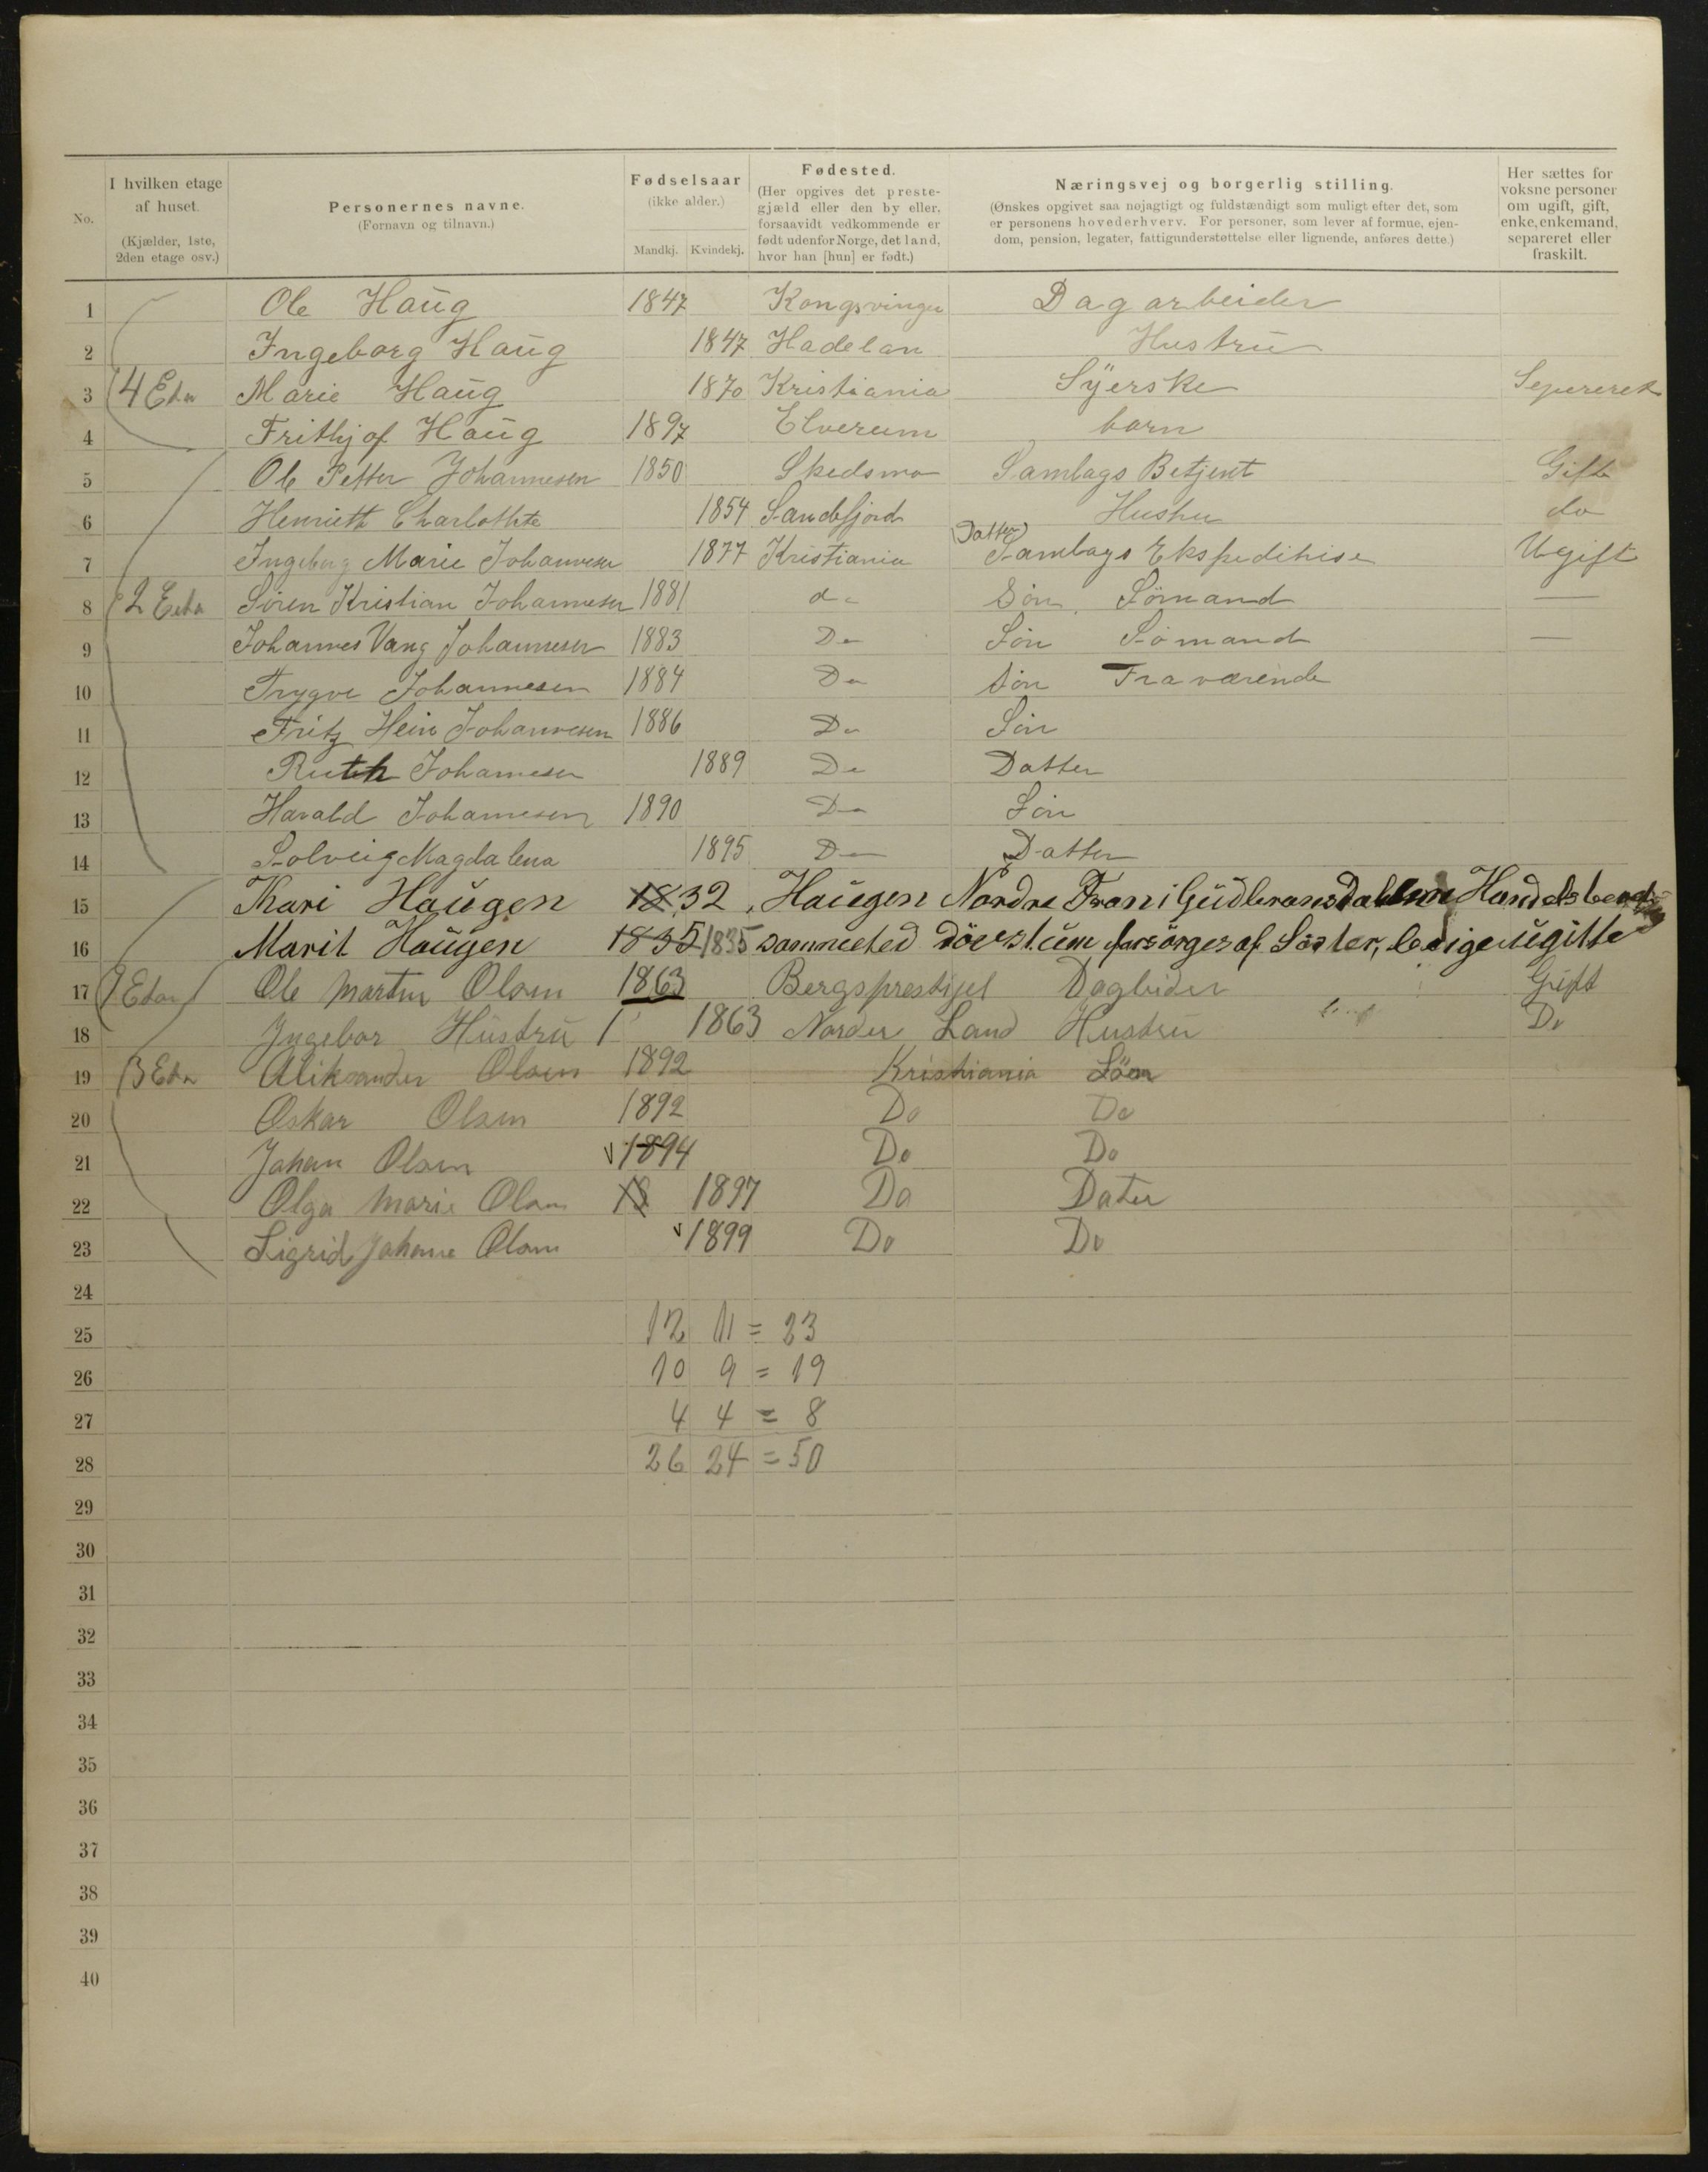 No.
I hvilken etage af huset. (Kjælder, 1ste, 2den etage osv.)
Personernes navne. (Fornavn og tilnavn.)
Fødselsaar (ikke alder.) Mandkj. Kvindekj.
Fødested. (Her opgives det prestegjæld eller den by eller, forsaavidt vedkommende er født udenfor Norge, det land, hvor han [hun] er født.)
Næringsvej og borgerlig stilling. (Ønskes opgivet saa nøjagtigt og fuldstændigt som muligt efter det, som er personens hovederhverv. For personer, som lever af formue, ejendom, pension, legater, fattigunderstøttelse eller lignende, anføres dette.)
Her sættes for voksne personer om ugift, gift, enke, enkemand, separeret eller fraskilt.
1 Ole Haug 1847 Kongsvinger Dagarbeider
2 Ingeborg Haug 1847 Hadelan Hustru
3 4 Eta Marie Haug 1870 Kristiania Syerske Sepereret
4 Frithjof Haug 1897 Elverum barn
5 Ole Petter Johannesen 1850 Skedsmo Samlags Betjent Gift
6 Henriette Charlothte 1854 Sandefjord Hustru do
7 Ingeborg Marie Johannesen 1877 Kristiania (Datter) Samlags Ekspeditrise Ugift
8 2 Eeta Sören Kristian Johannesen 1881 do Sön Sömand —
9 Johannes Vang Johannesen 1883 Do Sön Sömand —
10 Trygve Johannesen 1884 Do Sön Fraværende
11 Fritz Hein Johannesen 1886 Do Sön
12 Ruth Johannesen 1889 Do Datter
13 Harald Johannesen 1890 Do Sön
14 Solveig Magdalena 1895 Do Datter
15 Kari Haugen 18 32 Haugen Nordre Fron i Gudbransdahlen
16 Marit Haugen 1835 1835 sammested dövstum forsörges af Söster, ledige ugifte
17 1 Eta Ole Martin Olsen 1863 Bergsprestgjel Dagbeider Gift
18 Ingebor Hustru 1 1863 Norder Land Hustru Do
19 3 Eta Aliksander Olsen 1892 Kristiania Sön
20 Oskar Olsen 1892 Do Do
21 Johan Olsen 1894 Do Do
22 Olga Marie Olsen 18 1897 Do Dater
23 Sigrid Johane Olsen 1899 Do Do
24
25 12 11 = 23
26 10 9 = 19
27 4 4 = 8
28 26 24 = 50
29
30
31
32
33
34
35
36
37
38
39
40